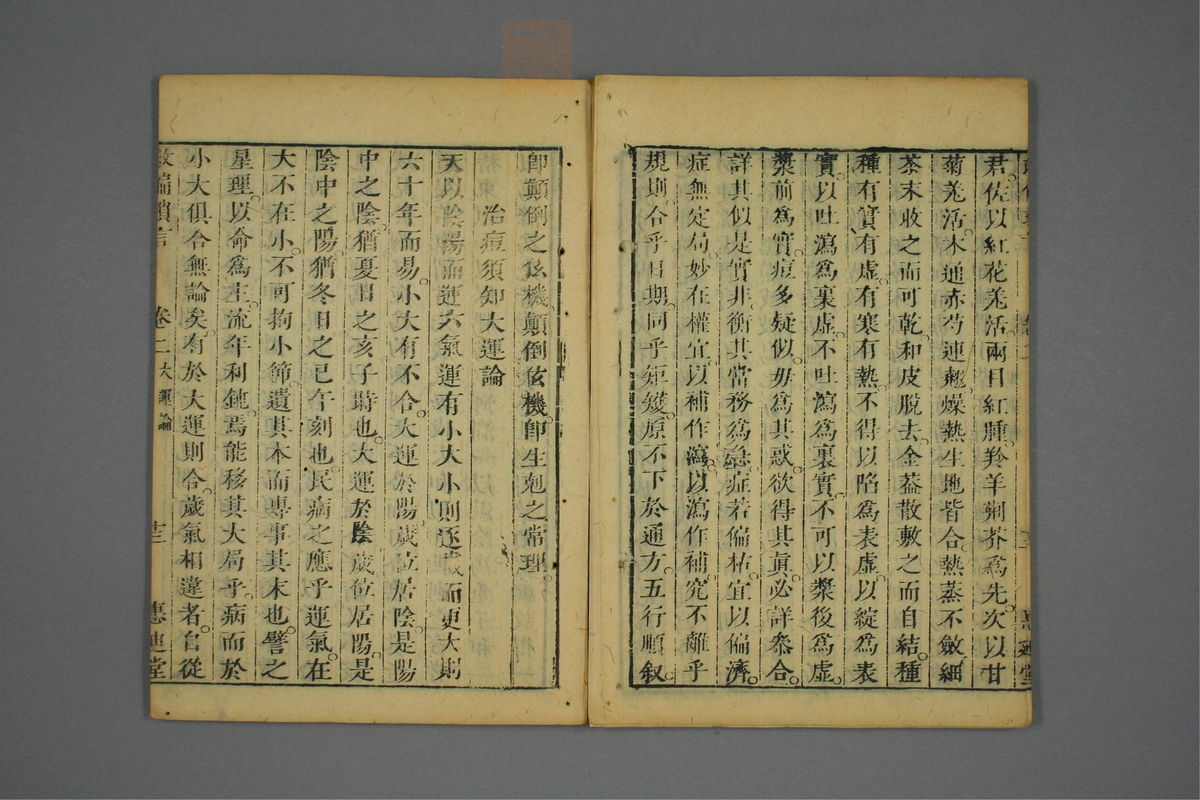 君佐以紅花羌活兩目紅腫羚羊荊芥爲先次以甘
菊羌活木通赤芍連翹燥熱生地皆合熱蒸不斂細
茶末收之而可乾和皮脫去金葢散敷之而自結種
種有實有虛有寒有熱不得以陷爲表虛以綻爲表
實以吐瀉爲裏虛不吐瀉爲裏實不可以漿後爲虛
漿前爲實痘多疑似毋爲其惑欲得其眞必詳叅合
詳其似是實非衡其當務爲急症若偏枯宜以偏濟
症無定局妙在權宜以補作瀉以瀉作補究不離乎
規則合乎日期同乎矩矱原不下於通方五行順叙
卽顛倒之玹機顛倒玹機卽生剋之常理
治痘須知大運論
天以陰陽而運六氣運有小大小則逐歲而更大則
六十年而易小大有不合大運於陽歲位居陰是陽
中之陰猶夏日之亥子時也大運於陰歲位居陽是
陰中之陽猶冬日之巳午刻也民病之應乎運氣在
大不在小不可拘小節遺其本而專事其末也譬之
星理以命爲主流年利鈍焉能移其大局乎病而於
小大俱合無論矣有於大運則合歲氣相違者自從
救偏瑣言 卷二 大運論 十三 惠迪堂